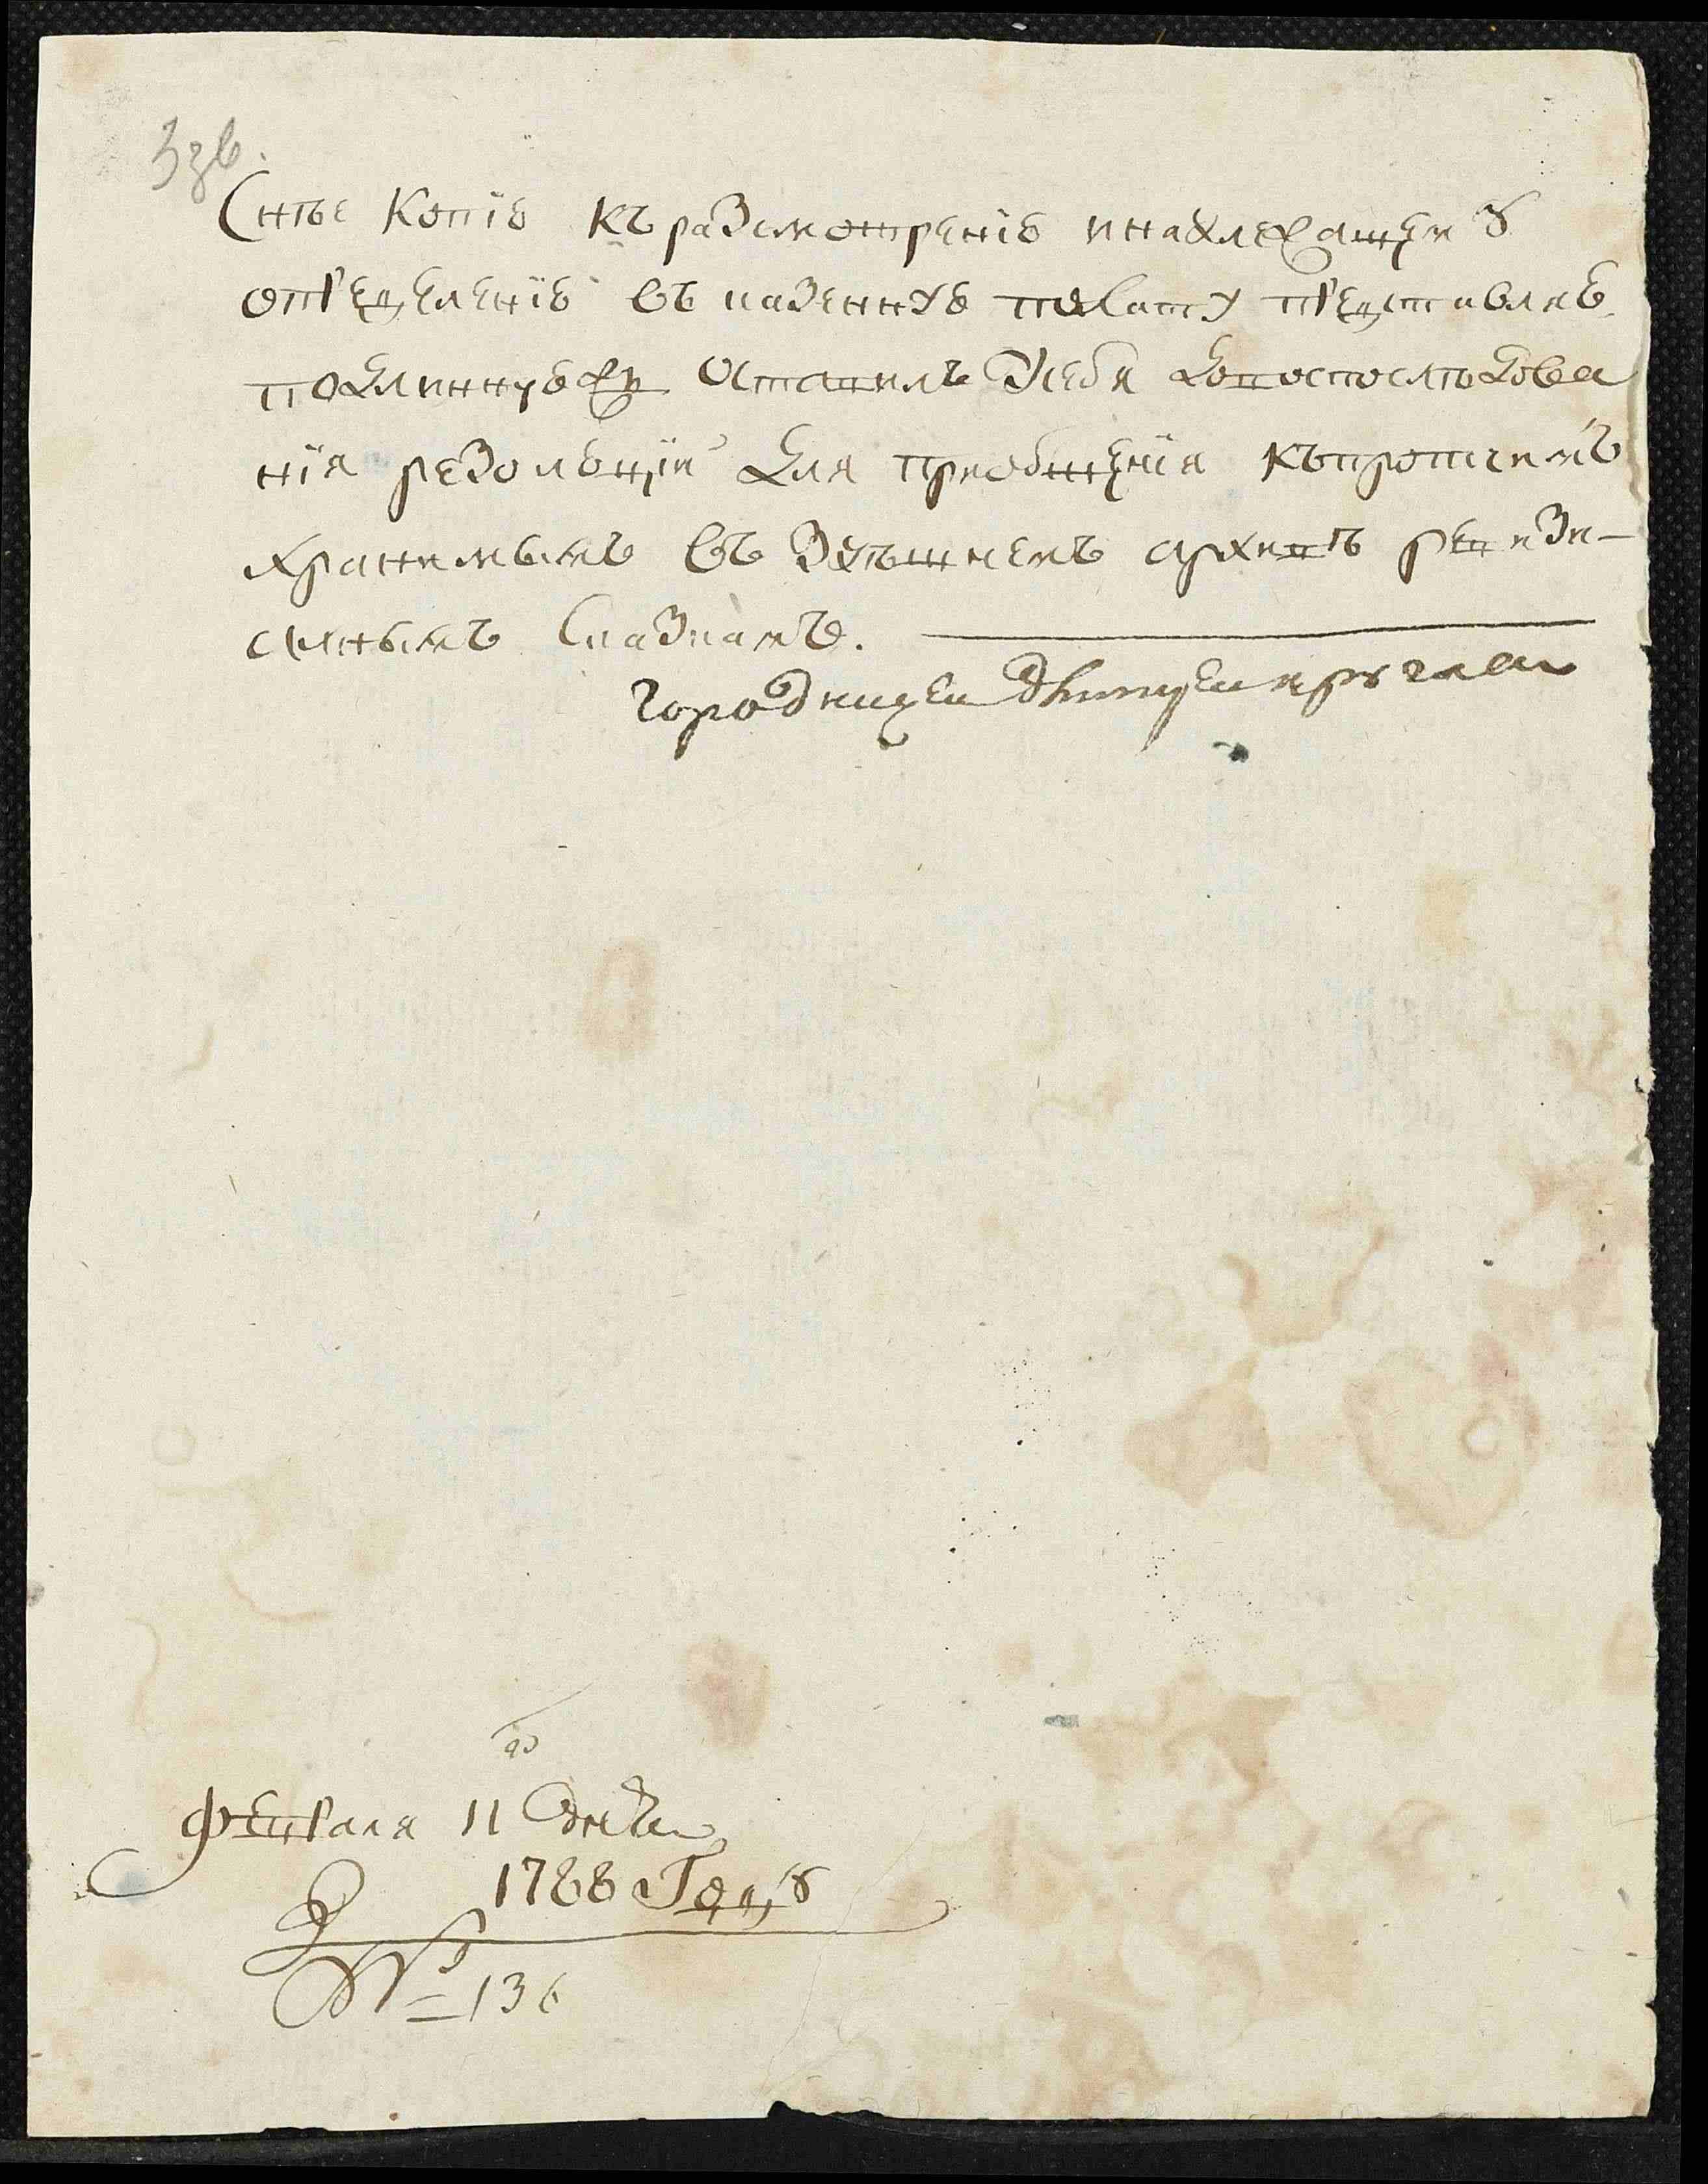 Снѣе копїю къ разсмотренїю инадлежащему
определенїю въ казенную палату представляю
подлинную жъ оставилъ усебя довоспоследова
нїя резолюцїи для приобщенїя къпротчимъ
хранимымъ въ здѣшнемъ архивѣ ревизи-
оннымъ сказкамъ.
городничей Дмитрей
февраля 11 дня
1788 Году
№ 136